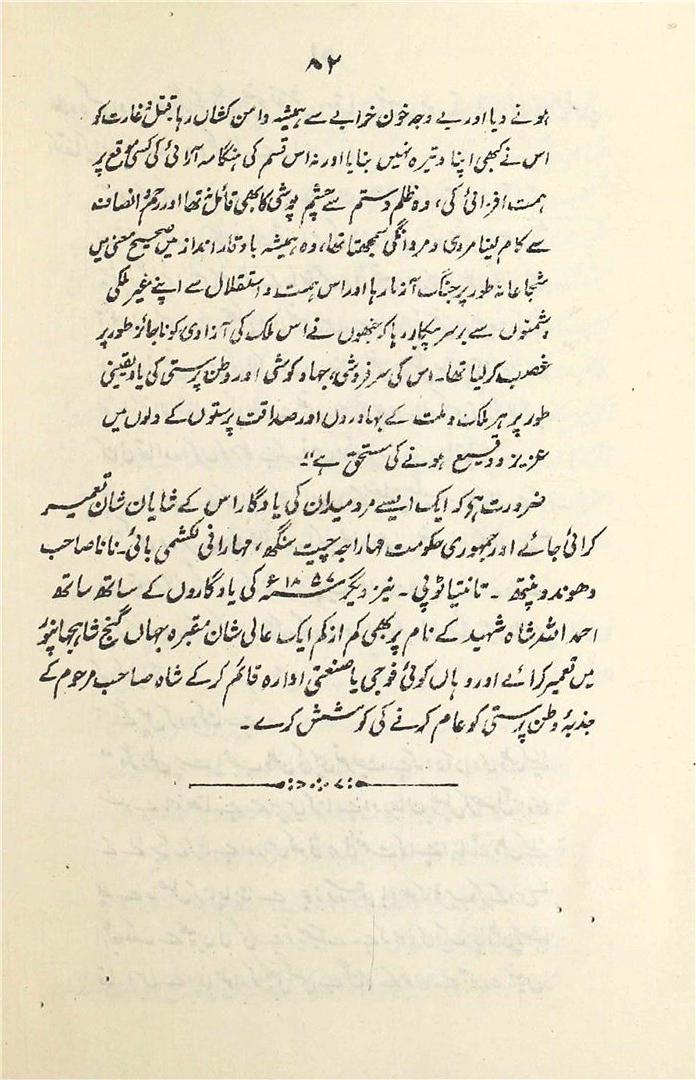 ۸۲
ہونے دیا اور بے وجہ خون خرابے سے ہمیشہ دامن کشاں رہا قتل و غارت کو
اس نے کبھی اپنا وتیرہ نہیں بنایا اور نہ اس قسم کی ہنگامہ آرائی کی کسی موقع پر
ہمت افزائی کی، وہ ظلم و ستم سے چشم پوشی کا بھی قائل نہ تھا اور رحم و انصاف
سے کام لینا مردی و مردانگی سمجھتا تھا، وہ ہمیشہ باوقار انداز میں صحیح معنی میں
شجاعانہ طور پر جنگ آزما رہا اور اس ہمت و استقلال سے اپنے غیر ملکی
دشمنوں سے برسر پیکار رہا کہ جنھوں نے اس ملک کی آزادی کو ناجائز طور پر
غصب کر لیا تھا۔ اس کی سرفروشی، جہاد کوشی اور وطن پرستی کی یاد یقینی
طور پر ہر ملک و ملت کے بہادروں اور صداقت پرستوں کے دلوں میں
عزیز و وقیع ہونے کی مستحق ہے"۔
ضرورت ہے کہ ایک ایسے مرد میدان کی یادگار اس کے شایان شان تعمیر
کرائی جائے اور جمہوری حکومت مہاراجہ چیت سنگھ، مہارانی لکشمی بائی۔ نانا صاحب
دھوندو پنتھ ۔ تانتیا ٹوپی ۔ نیز دیگر ۱۸۵۷ء کی یادگاروں کے ساتھ ساتھ
احمد اللہ شاہ شہید کے نام پر بھی کم از کم ایک عالی شان مقبرہ جہاں گنج شاہجہانپور
میں تعمیر کرائے اور وہاں کوئی فوجی یا صنعتی ادارہ قائم کرکے شاہ صاحب مرحوم کے
جذبۂ وطن پرستی کو عام کرنے کی کوشش کرے ۔